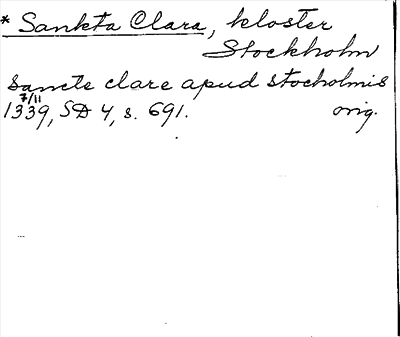 * Sankta Clara, kloster
Stockholm
Sancte clare apud stocholmis
7/11
1339, SD 4, s. 691. orig.